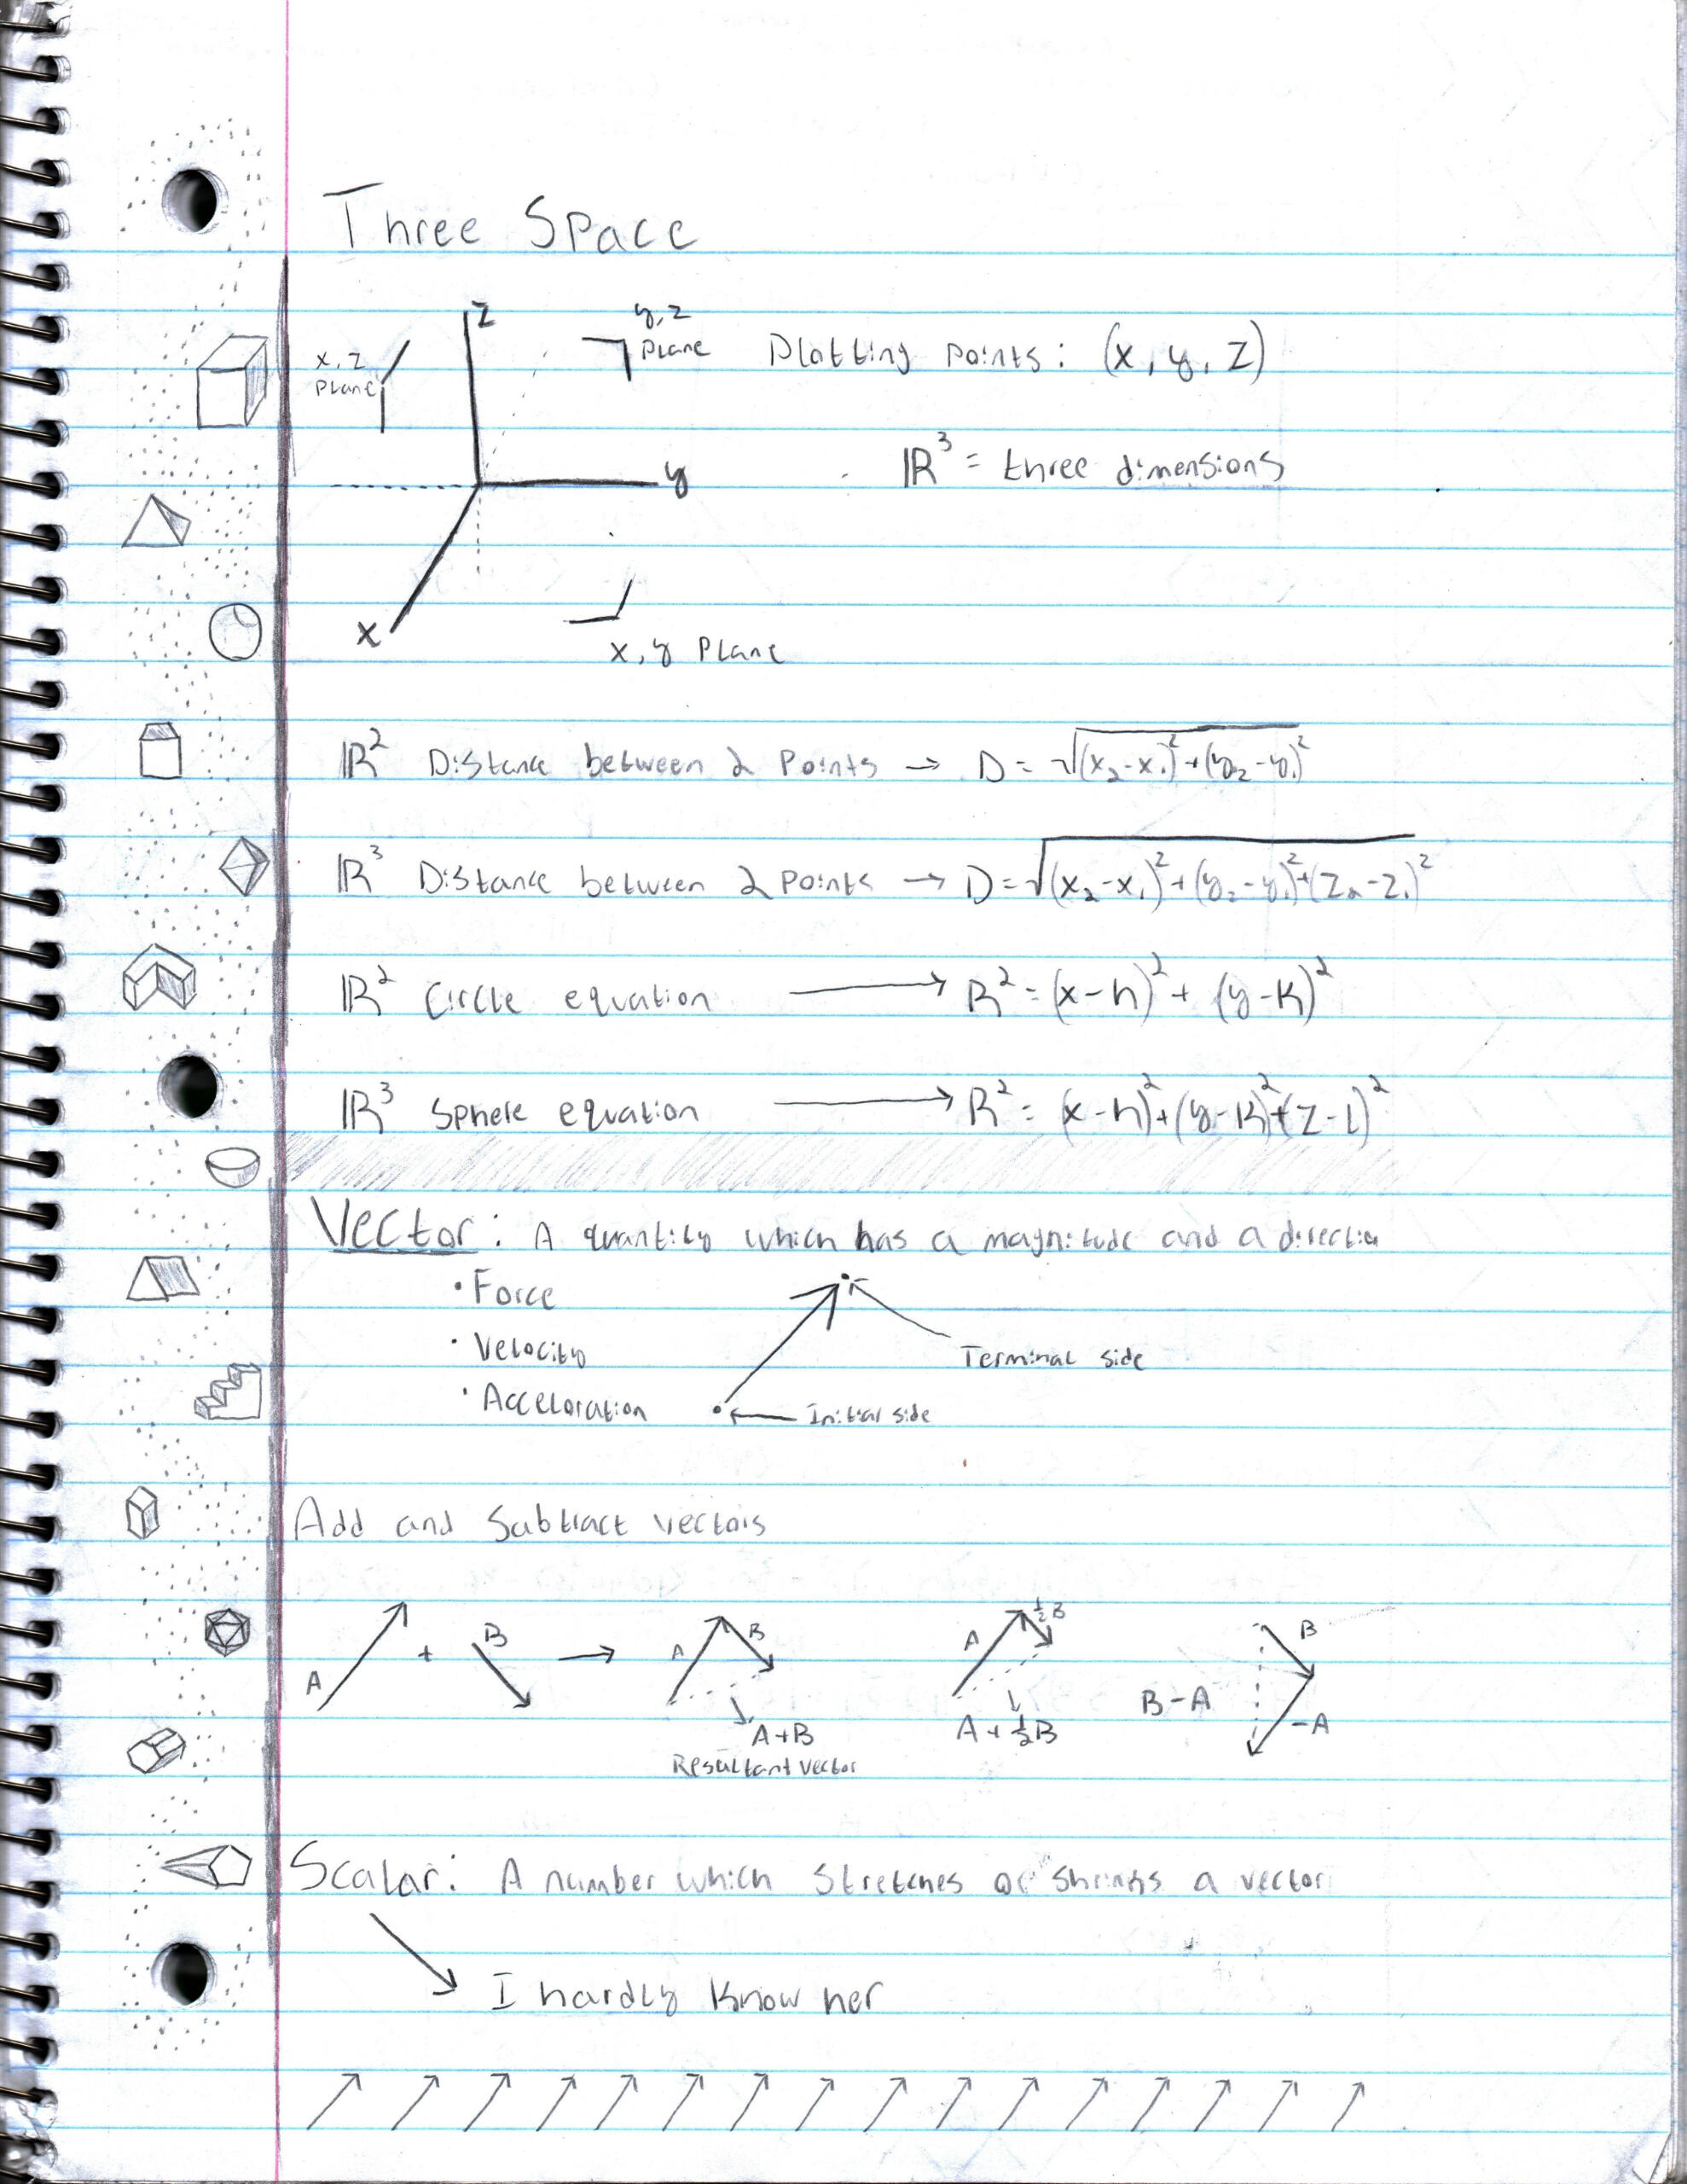 Three Space
z
y, z
Plane
Plotting points: (x, y, z)
x, z
Plane
ℝ³ = three dimensions
y
x
x, y Plane
ℝ² Distance between 2 Points → D = √(x₂-x₁)²+(y₂-y₁)²
ℝ³ Distance between 2 Points → D=√(x₂-x₁)²+(y₂-y₁)²+(z₂-z₁)²
ℝ² Circle equation → R² = (x-h)² + (y-k)²
ℝ³ Sphere equation → R² = (x-h)²+(y-k)²+(z-l)²
Vector: A quantity which has a magnitude and a direction
• Force
• Velocity
Terminal side
• Acceloration
Initial side
Add and Subtract vectors
A + B → A B A ½B B
B-A
A+B A+½B -A
Resultant vector
Scalar: A number which Stretches or Shrinks a vector
I hardly know her